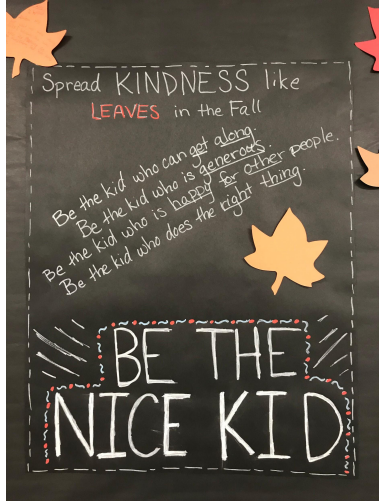 Spread KINDNESS like
LEAVES in the Fall
Be the kid who can get along.
Be the kid who is generous.
Be the kid who is happy for other people.
Be the kid who does the right thing.
BE THE
NICE KID